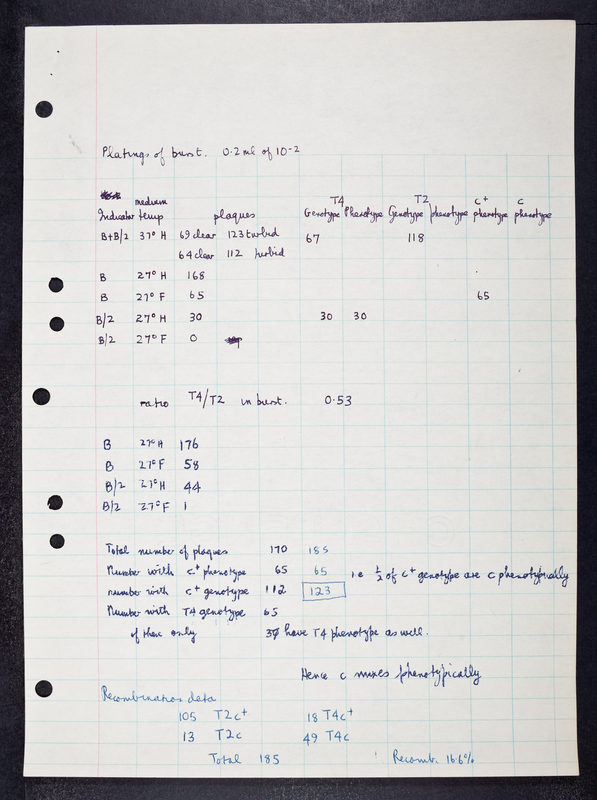 Platings of burst. 0.2 ml of 10-2
medium
Indicator temp plaques T4 Genotype Phenotype T2 Genotype phenotype c+ phenotype c phenotype
B+B/2 37° H 69 clear 123 turbid 67 118
64 clear 112 turbid
B 27° H 168
B 27° F 65 65
B/2 27° H 30 30 30
B/2 27° F 0
ratio T4/T2 in burst. 0.53
B 27° H 176
B 27° F 58
B/2 27° H 44
B/2 27° F 1
Total number of plaques 170 185
Number with c+ phenotype 65 65 i.e ½ of c+ genotype are c phenotypically
number with c+ genotype 112 123
Number with T4 genotype 65
of these only have T4 phenotype as well.
Hence c mixes phenotypically
Recombination data
105 T2c+ 18 T4c+
13 T2c 49 T4c
Total 185 Recomb. 16.6%